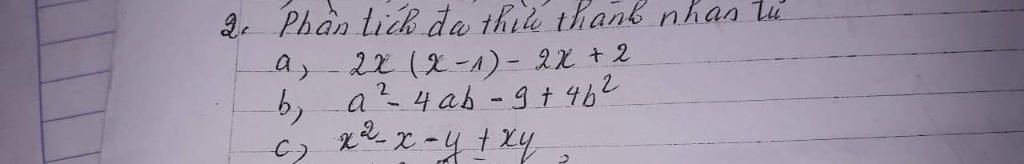 2. Phân tích đa thức thành nhân tử
a, 2x (x-1) - 2x + 2
b, a² - 4ab - 9 + 4b²
c) x² - x - y + xy